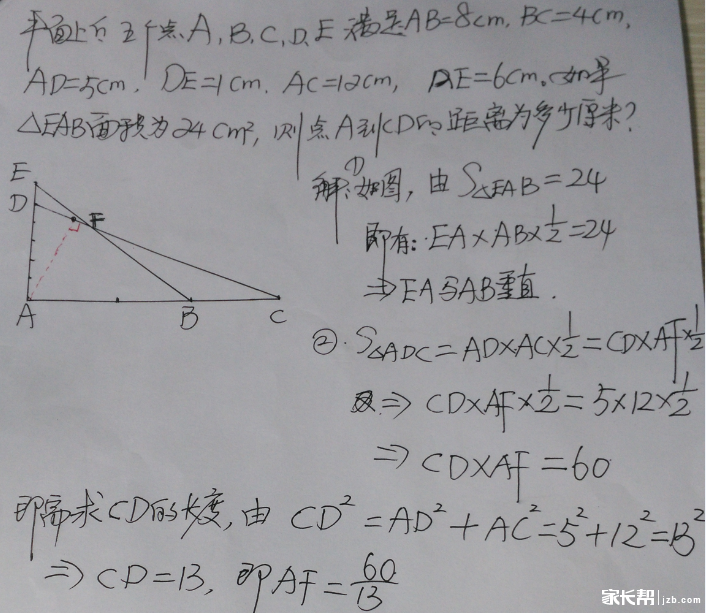 平面上有五个点A,B,C,D,E满足AB=8cm,BC=4cm,
AD=5cm,DE=1cm,AC=12cm,AE=6cm。如果
△EAB面积为24cm²,则点A到CD的距离为多少厘米?
E
D
F
A
B
C
解:①如图,由S△EAB=24
即有:EA×AB×1/2=24
⇒EA与AB垂直.
②.S△ADC=AD×AC×1/2=CD×AF×1/2
⇒CD×AF×1/2=5×12×1/2
⇒CD×AF=60
即需求CD的长度,由CD²=AD²+AC²=5²+12²=13²
⇒CD=13,即AF=60/13
家长帮|jzb.com